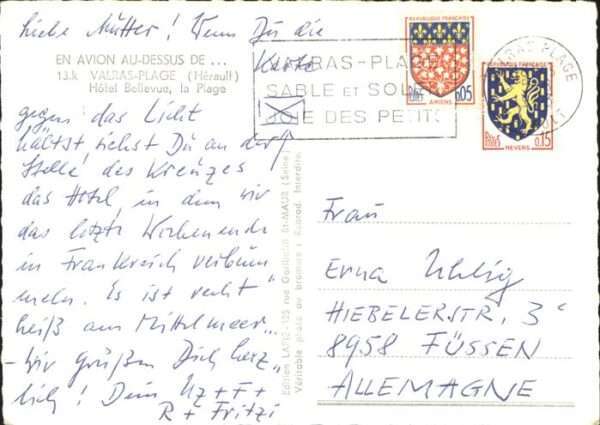 Liebe Mutter! Wenn Du die
Karte
EN AVION AU-DESSUS DE...
13.k VALRAS-PLAGE (Hérault)
Hôtel Bellevue, la Plage
gegen das Licht
hältst siehst Du an der
Stelle des Kreuzes
das Hotel, in dem wir
das letzte Wochenende
in Frankreich verbum
meln. Es ist recht
heiß am Mittelmeer...
wir grüßen Dich herz
lich! Dein Uz + F +
R + Fritzi
Edition LAPIE-125 rue St-MAUR (Seine)
Véritable photo au bromure - Reprod. Interdite.
VALRAS-PLAGE
SABLE ET SOLEIL
JOIE DES PETITS
REPUBLIQUE FRANÇAISE
POSTES 0,05
AMIENS
REPUBLIQUE FRANÇAISE
POSTES 0,15
NEVERS
VALRAS-PLAGE
Frau
Erna Uhlig
HIEBELERSTR. 3c
8958 FÜSSEN
ALLEMAGNE